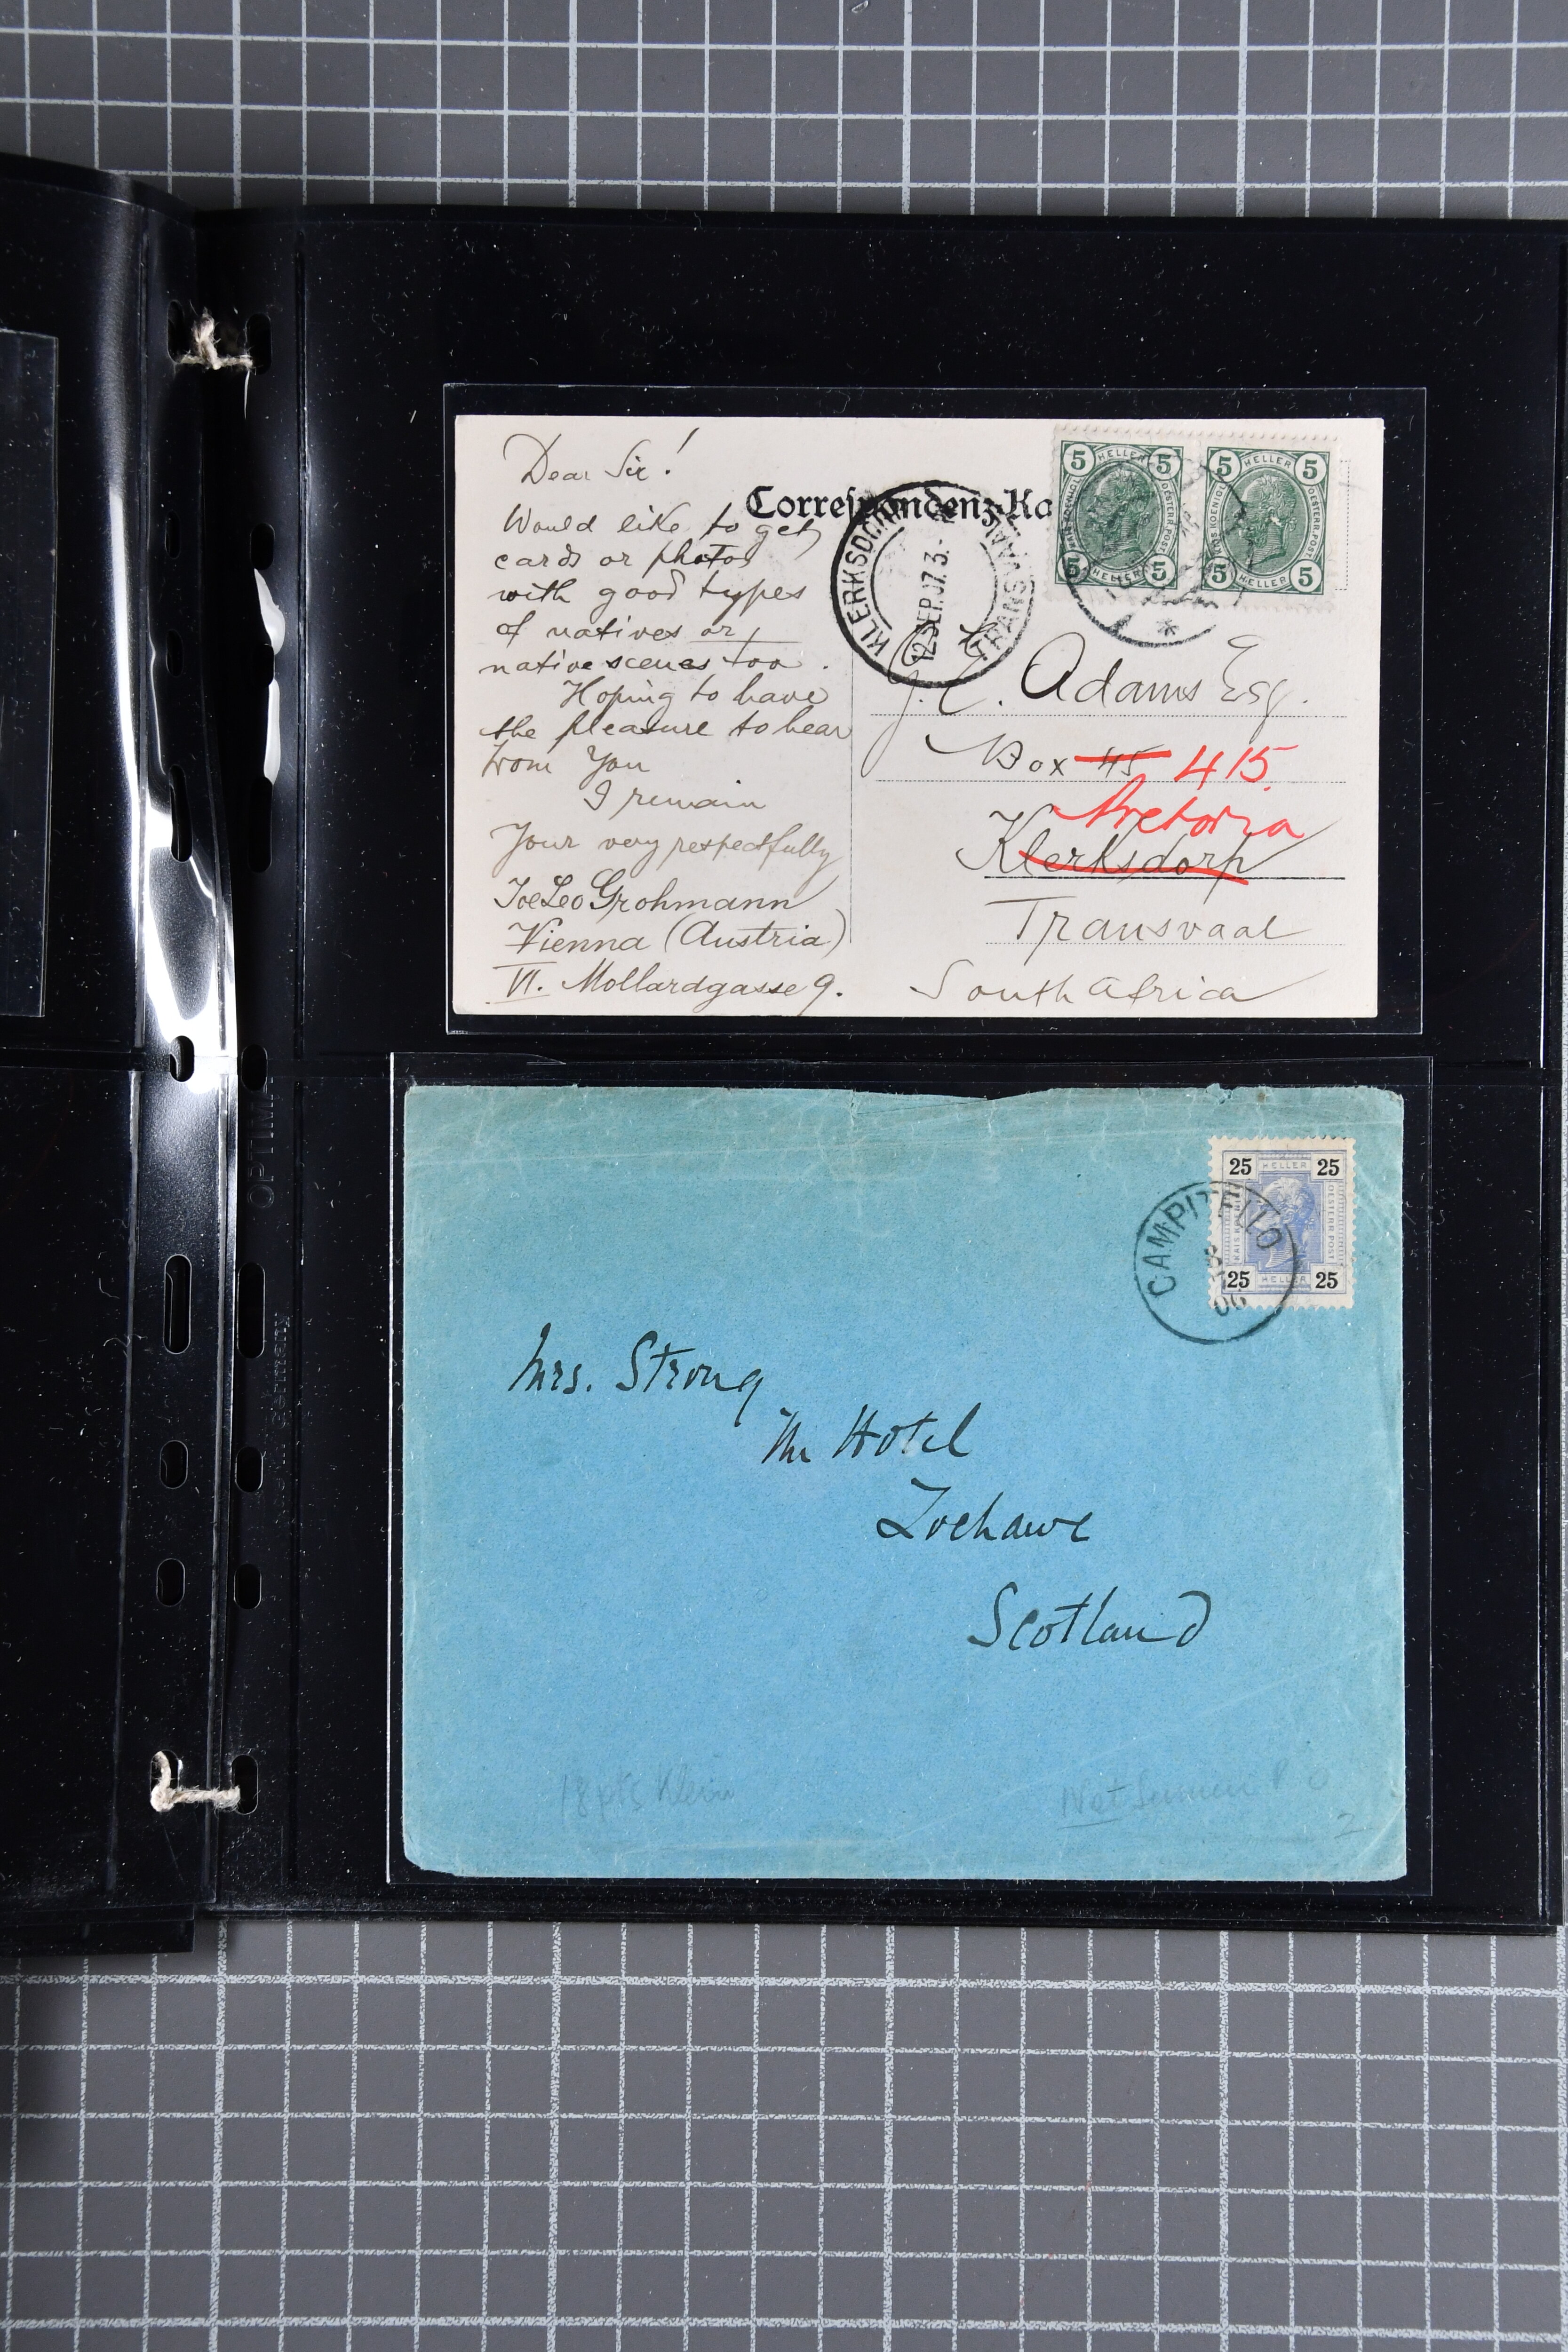 Dear Sir!
Would like to get
cards or photos
with good types
of natives or
native scenes too.
Hoping to have
the pleasure to hear
from You
I remain
Your very respectfully
Joe Leo Grohmann
Vienna (Austria)
VI. Mollardgasse 9.
Correspondenz-Ka
KLERKSDORP
12 SEP. 07 3.-
TRANSVAAL
5 HELLER 5
KAIS KOENIGL
OESTERR. POST
5 HELLER 5
5 HELLER 5
KAIS KOENIGL
OESTERR. POST
5 HELLER 5
J. C. Adams Esq.
Box 45 415.
Pretoria
Klerksdorp
Transvaal
South Africa
OPTIMA
Germany
25 HELLER 25
OESTERR POST
25 HELLER 25
CAMPITELLO
8
06
Mrs. Strong
The Hotel
Lochawe
Scotland
18 Klein
Not
2